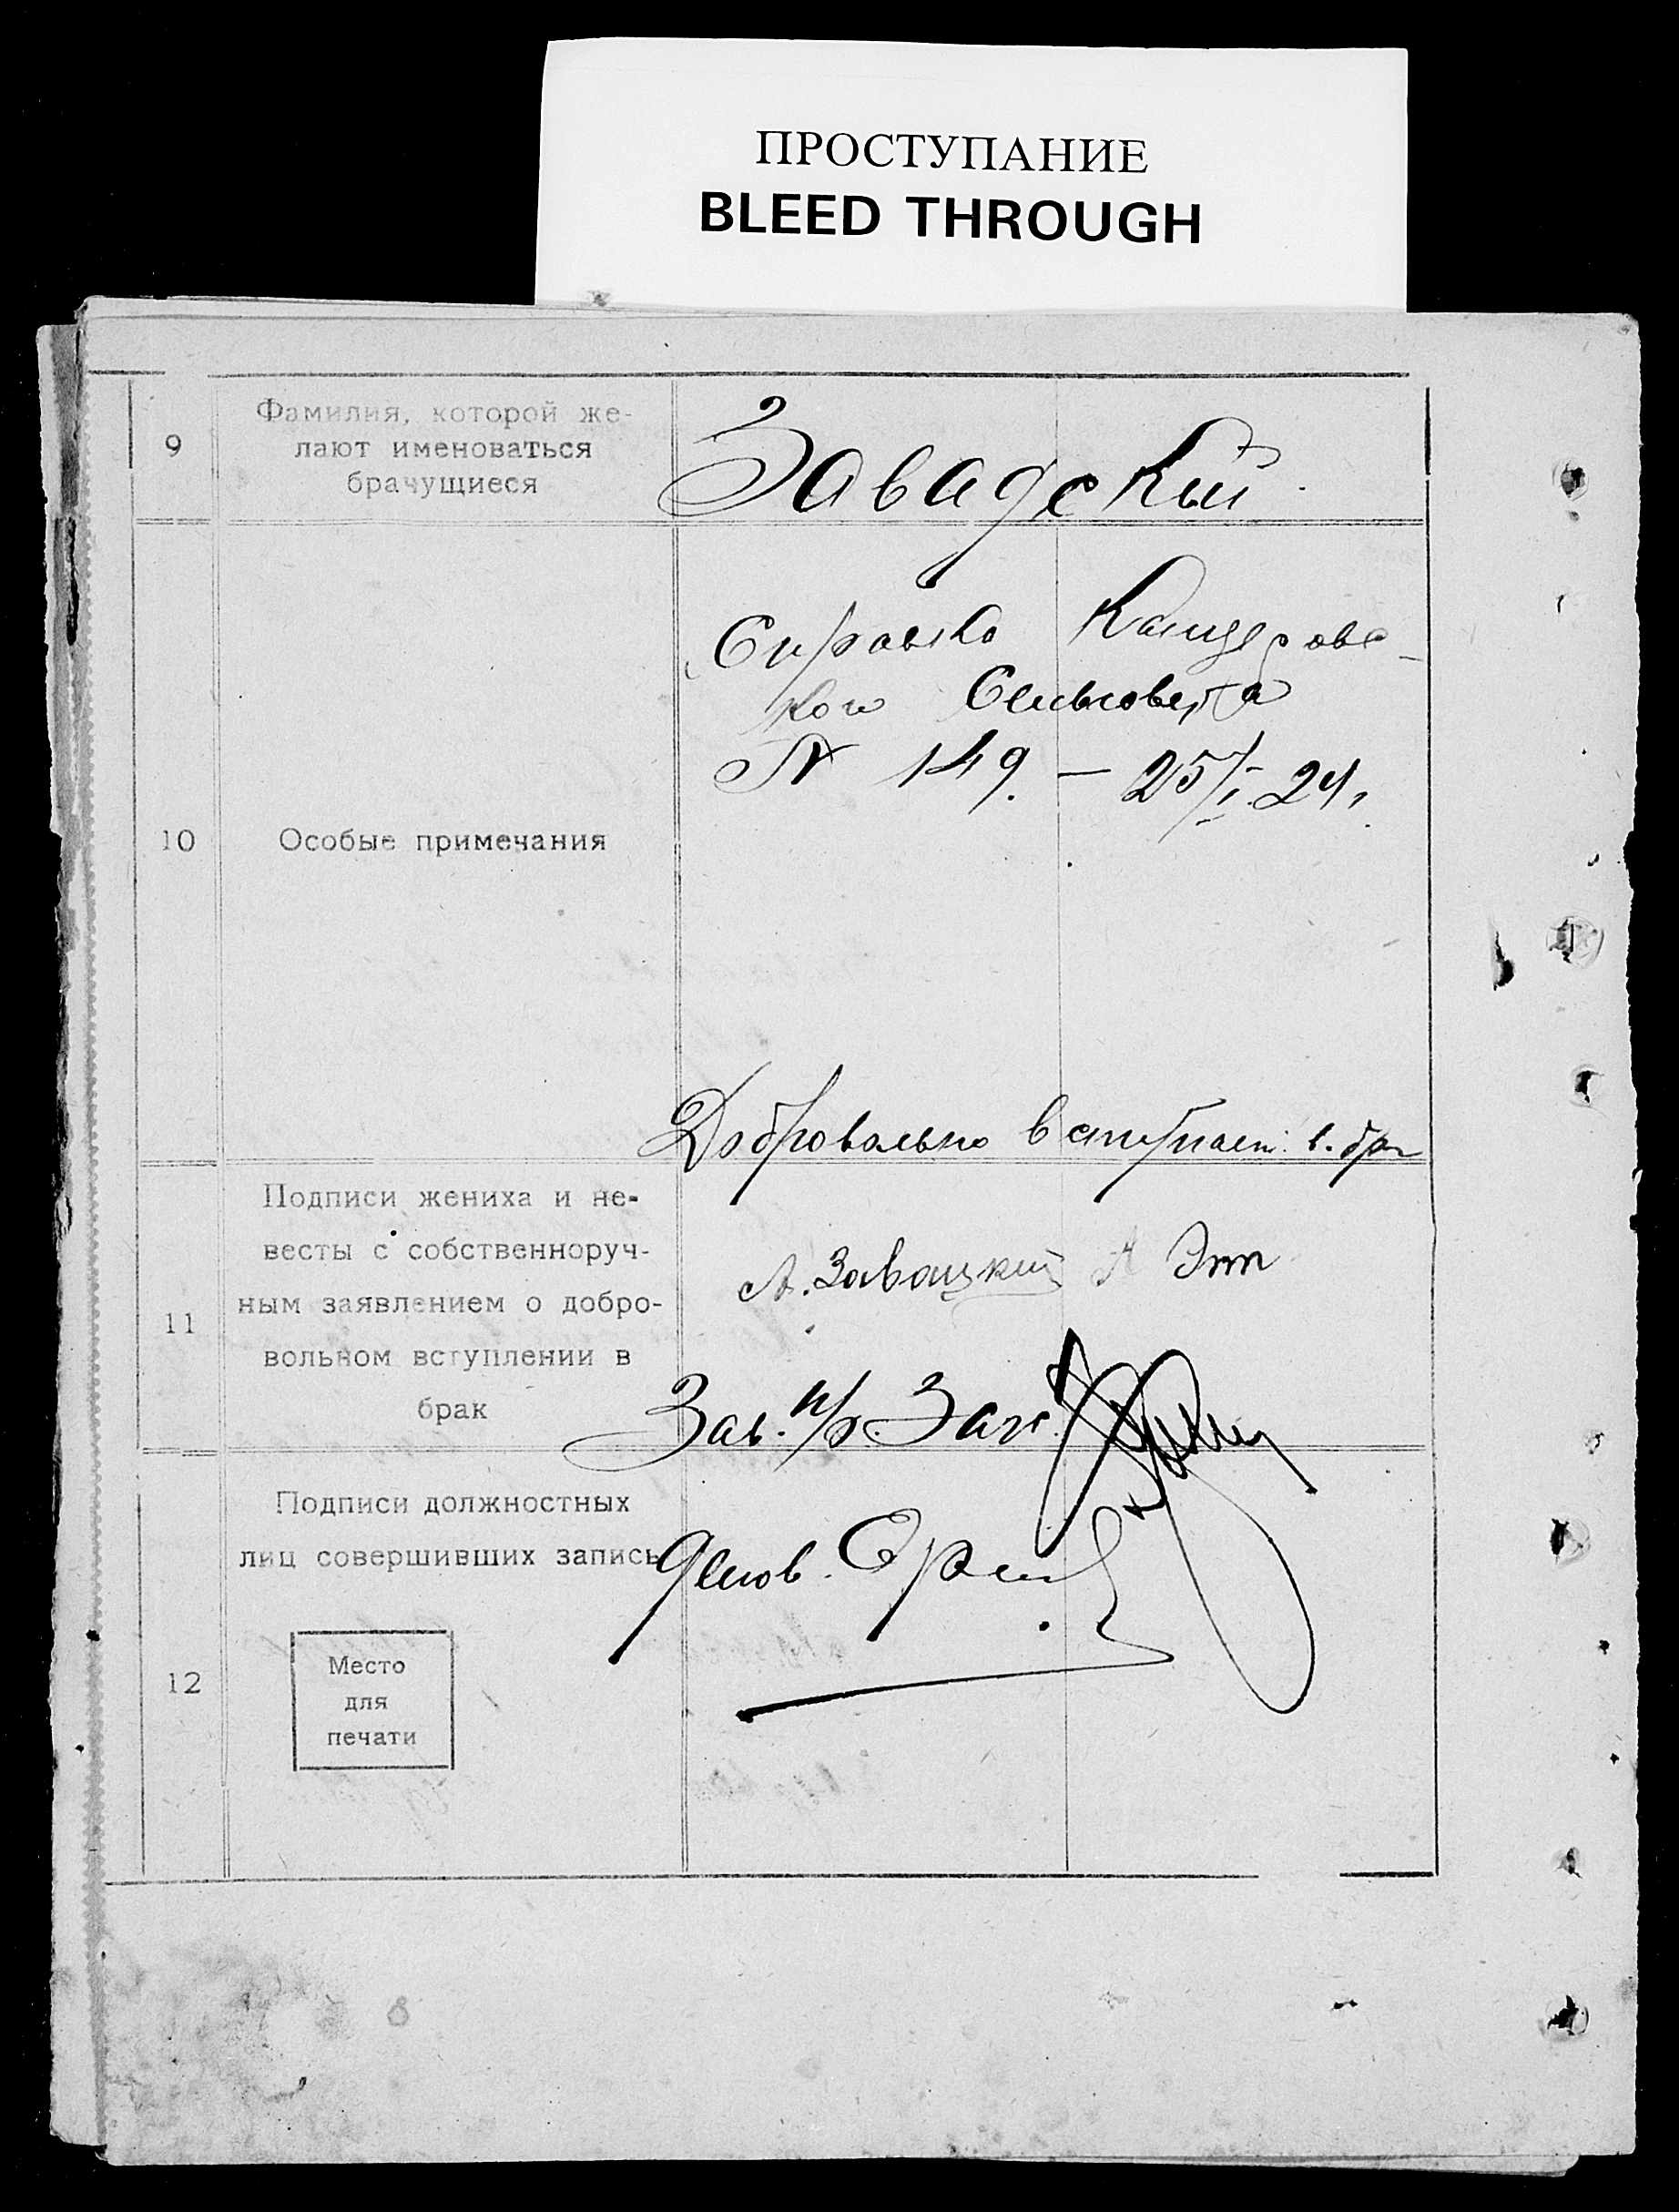 ПРОСТУПАНИЕ
BLEED THROUGH
9
Фамилия, которой же-
лают именоваться
брачущиеся
Завадский
10
Особые примечания
Справка
Сельсовета
№ 149. — 25/I-24.
Добровольно вступаем в. брак
11
Подписи жениха и не-
весты с собственноруч-
ным заявлением о добро-
вольном вступлении в
брак
А. Завацкий
Зав. п/о. Загс.
12
Подписи должностных
лиц совершивших запись
Делов.
Место
для
печати